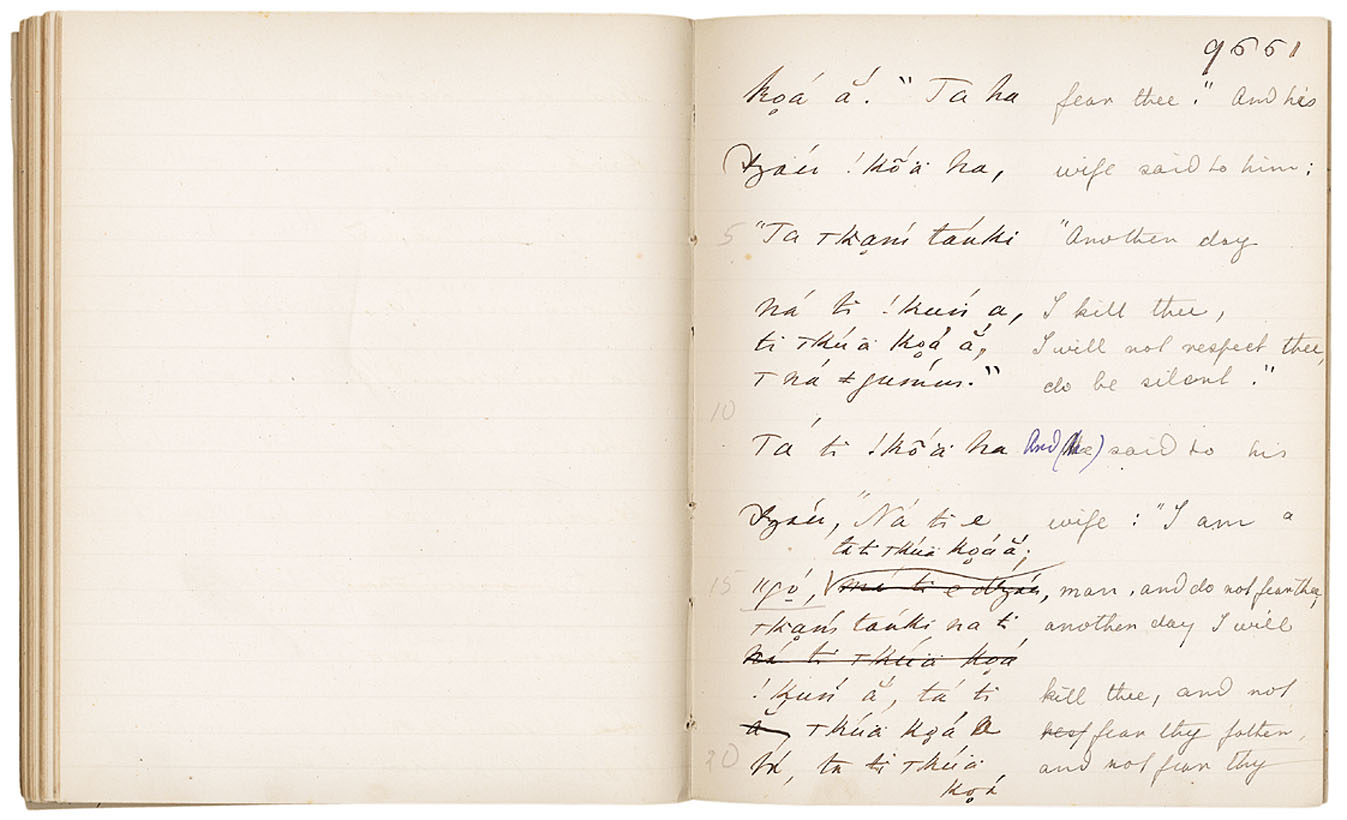 9551
ko̥á ắ." Ta ha fear thee." And his
!kṍä ha, wife said to him:
5 "Ta тka̤ṅ́ taúki "Another day
ná ti !kuṅ́ a, I kill thee,
ti тkúä ko̥á ắ, I will not respect thee,
т ná ǂgumm. " do be silent."
10
Tá ti !kṍä ha And (he) said to his
"Ná ti e wife: "I am a
ta ti тkúä ko̥á ắ,
15 "gó̱, man, and do not fear thee,
тka̤ṅ́ taúki na ti another day I will
ná ti тkúä ko̥á
!kuṅ́ ắ, tá ti kill thee, and not
ắ, тkúä ko̥á a fear thy father,
20 ta ti тkúä and not fear thy
ko̥á